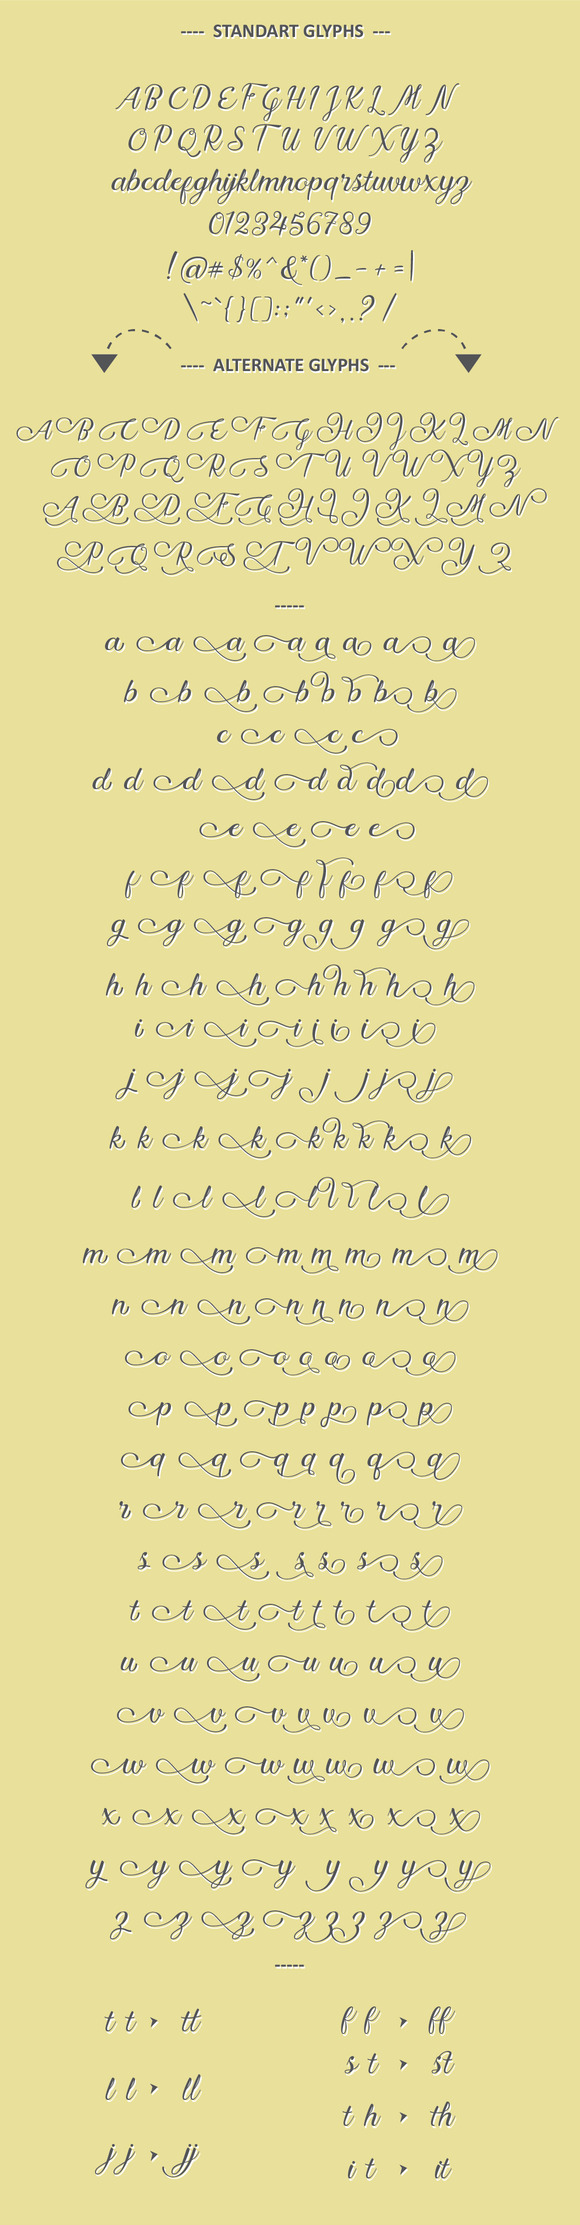 ---- STANDART GLYPHS ---
A B C D E F G H I J K L M N
O P Q R S T U V W X Y Z
abcdefghijklmnopqrstuvwxyz
0123456789
!@#$%^&*()_-+=|
\~`{}[]:;"'<>,.?/
---- ALTERNATE GLYPHS ---
A B C D E F G H I J K L M N
O P Q R S T U V W X Y Z
A B D F G H I J K L M N
P O R S T V W X Y Z
-----
a a a a a a a a
b b b b b b b b
c c c c
d d d d d d d d d
e e e e
f f f f f f f f
g g g g g g g g
h h h h h h h h h
i i i i i i i i
j j j j j j j j
k k k k k k k k k
l l l l l l l l l
m m m m m m m m
n n n n n n n n
o o o o o o o
p p p p p p p
q q q q q q q
r r r r r r r r
s s s s s s s
t t t t t t t t
u u u u u u u
v v v v v v v
w w w w w w w
x x x x x x x x
y y y y y y y y
z z z z z z z z
-----
t t ➤ tt
f f ➤ ff
s t ➤ st
l l ➤ ll
t h ➤ th
j j ➤ jj
i t ➤ it